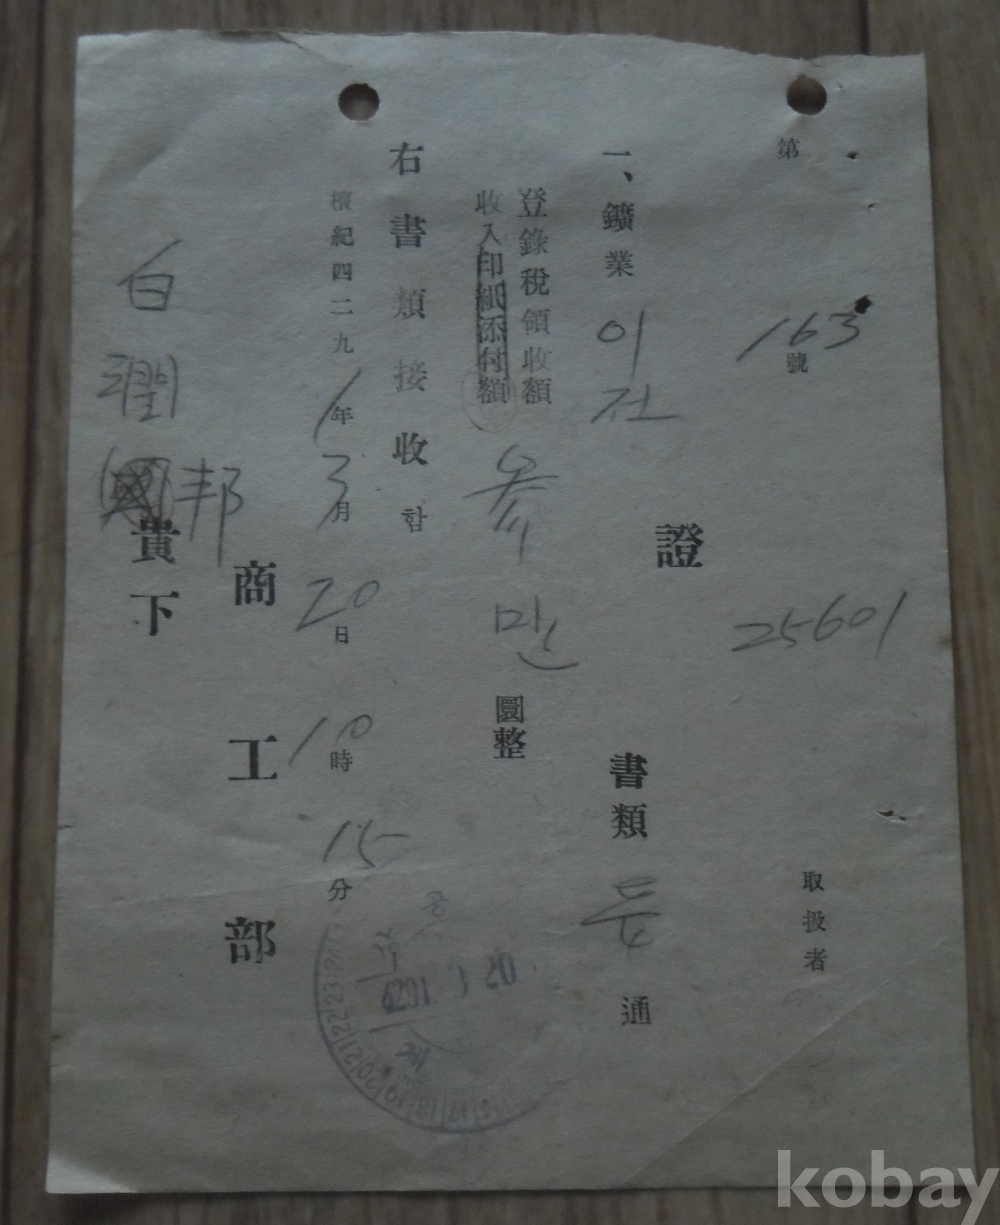 第 163 號
25601
取扱者
證
一、鑛業 이전 書類 두 通
登錄稅領收額
收入印紙添付額 参만 圜整
右書類接收함
檀紀四二九1年 3月 20日 10時 15分
商工部
白潤邦 貴下
4291 3 20
kobay